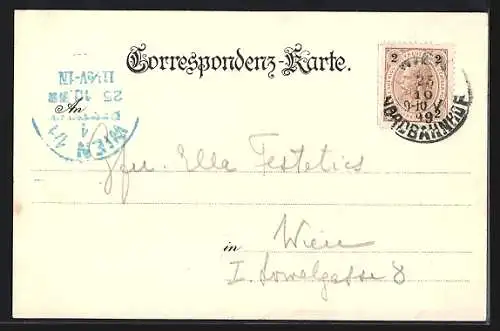 Correspondenz-Karte.
2 2
WIEN
25
10
9-10V
99
NORDBAHNHOF
WIEN 1/1
1
25 10 99
11.50V-1N
An
Ella Festetics
in Wien
I. Löwelgasse 8